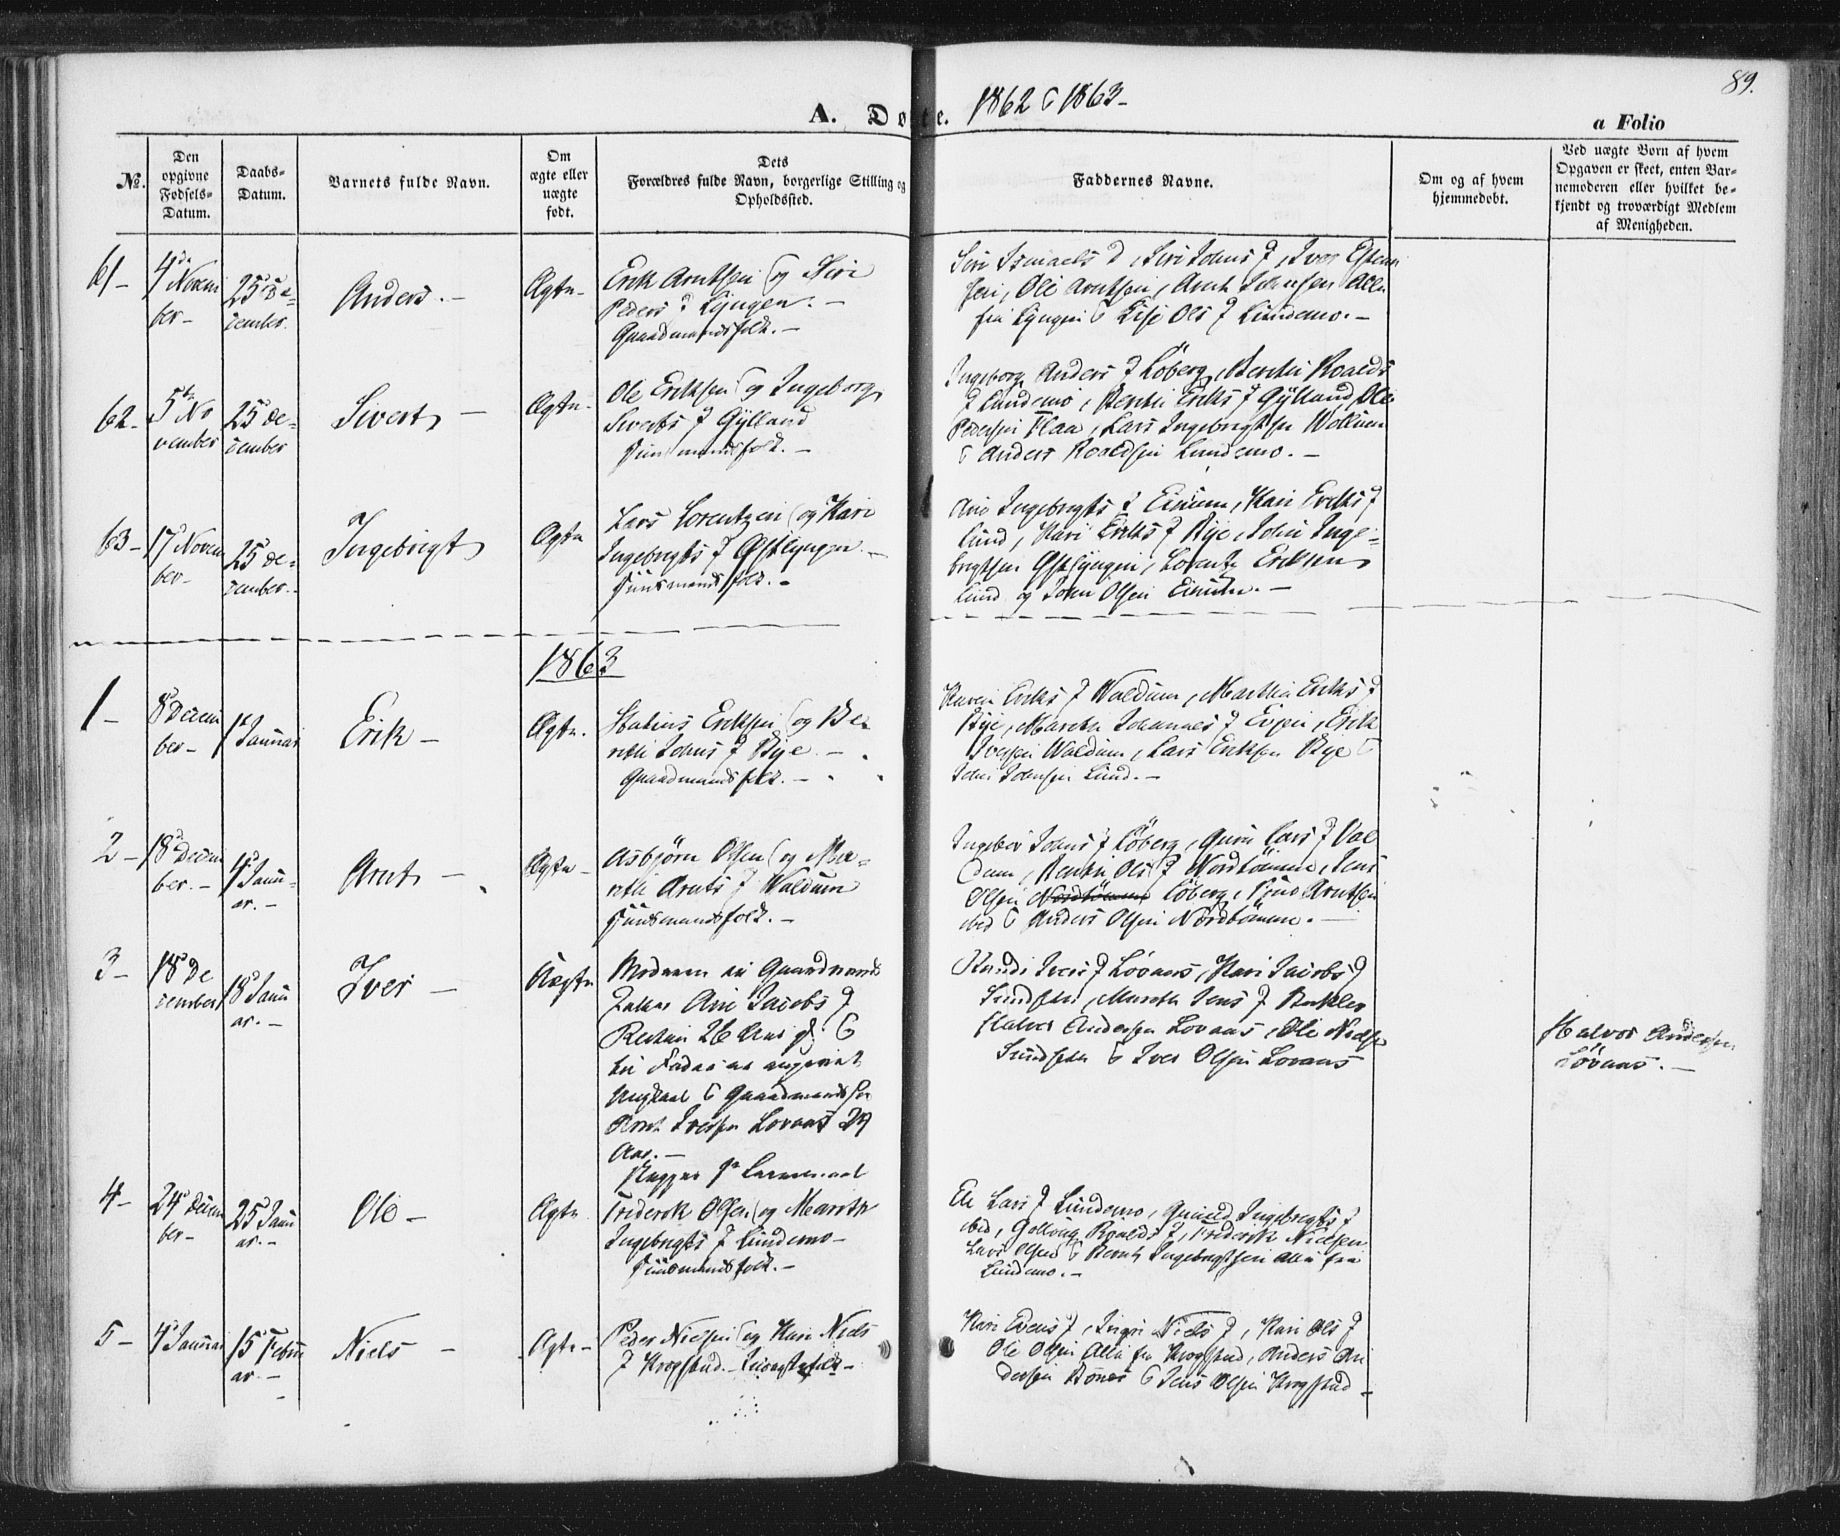 89.
A. Døbte. 1862 & 1863-
a Folio
No.
Den opgivne Fødsels-Datum.
Daabs-Datum.
Barnets fulde Navn.
Om ægte eller uægte født.
Dets Forældres fulde Navn, borgerlige Stilling og Opholdssted.
Faddernes Navne.
Om og af hvem hjemmedøbt.
Ved uægte Børn af hvem Opgaven er skeet, enten Barnemoderen eller hvilket bekjendt og troværdigt Medlem af Menigheden.
61-
4de Novem
ber-
25de De-
cember.
Anders.-
Ægte-
Erik Arntsen og Siri
Peders D Lyngen.-
Gaardmandsfolk.-
Siri Ismaels D, Siri Johns D, Iver Esten
sen, Ole Arntsen, Arnt Johnsen Alle
fra Lyngen & Lise Ols D Lundemo.-
62-
5te No
vember
25 De-
cember
Sivert -
Ægte-
Ole Eriksen og Ingeborg
Siverts D Gylland
Huusmandsfolk.-
Ingeborg Anders D Løberg, Berethe Roalds
D Lundemo, Berethe Eriks D Gylland, Ole
Pedersen Flaa, Lars Ingebrigtsen
& Anders Roaldsen Lundemo.-
63-
17 Novem
ber-
25 De-
cember.
Ingebrigt
Ægte
Lars Lorentzen og Kari
Ingebrigts D Østlyngen.-
Huusmandsfolk.-
Ane Ingebrigts D, Kari Eriks D
Lund, Kari Eriks D Bye, John Inge-
brigtsen Østlyngen, Lorentz Eriksen
Lund og John Olsen
1863
1-
8de Decem
ber-
1ste Januar
Erik-
Ægte.
Eriksen og Be
rethe Johns D Bye-
Gaardmandsfolk.-
Karen Eriks D Waldum, Marethe Eriks D
Bye, Marethe Johannes D Evjen, Erik
Iversen Waldum, Lars Eriksen Bye &
John Johnsen Lund.-
2-
18 Decem
ber.-
4 Janu-
ar.-
Arnt-
Ægte-
Asbjørn Olsen og Ma-
rethe Arnts D Waldum
Huusmandsfolk.-
Ingebor Johns D Løberg, Guru Lars D Val
dum, Berethe Ols D Nordtømme, Jens
Olsen Nordtømme Løberg, Arntsen
ibid & Anders Olsen Nordtømme.-
3-
18 De
cember
18 Janu
ar.-
Iver-
Uægte
Moderen er Gaardmands
Datter Ane Jacobs D
26 Aar gl. &
til Fader er angivet
Ungkarl & Gaardmandssøn
Arnt Iversen Løvaas 24
Aar.-
Begges 1ste Leiermaal
Randi Ivers D Løvaas, Kari Jacobs D
Sundseth, Mareth Jens D
Halvor Andersen Løvaas, Ole Nielsen
Sundseth & Iver Olsen Løvaas
Halvor Andersen
Løvaas.-
4-
24 Decem
ber-
25 Janu
ar.-
Ole-
Ægte
Frederik Olsen og Mareth
Ingebrigts D Lundemo-
Huusmandsfolk.-
Eli Lars D Lundemo, Gunild Ingebrigts D
ibid, Gollaug Roalds D, Frederik Nielsen
Lars Olsen & Bernt Ingebrigtsen Alle fra
Lundemo.-
5-
4 Januar
15 Febru
ar.-
Niels-
Ægte-
Peder Nielsen og Kari Niels
D Krogstad.-
Kari Evens D, Ingri Niels D, Kari Ols D
Ole Olsen Alle fra Krogstad, Anders An
dersen Bønes & Jens Olsen Krogstad-